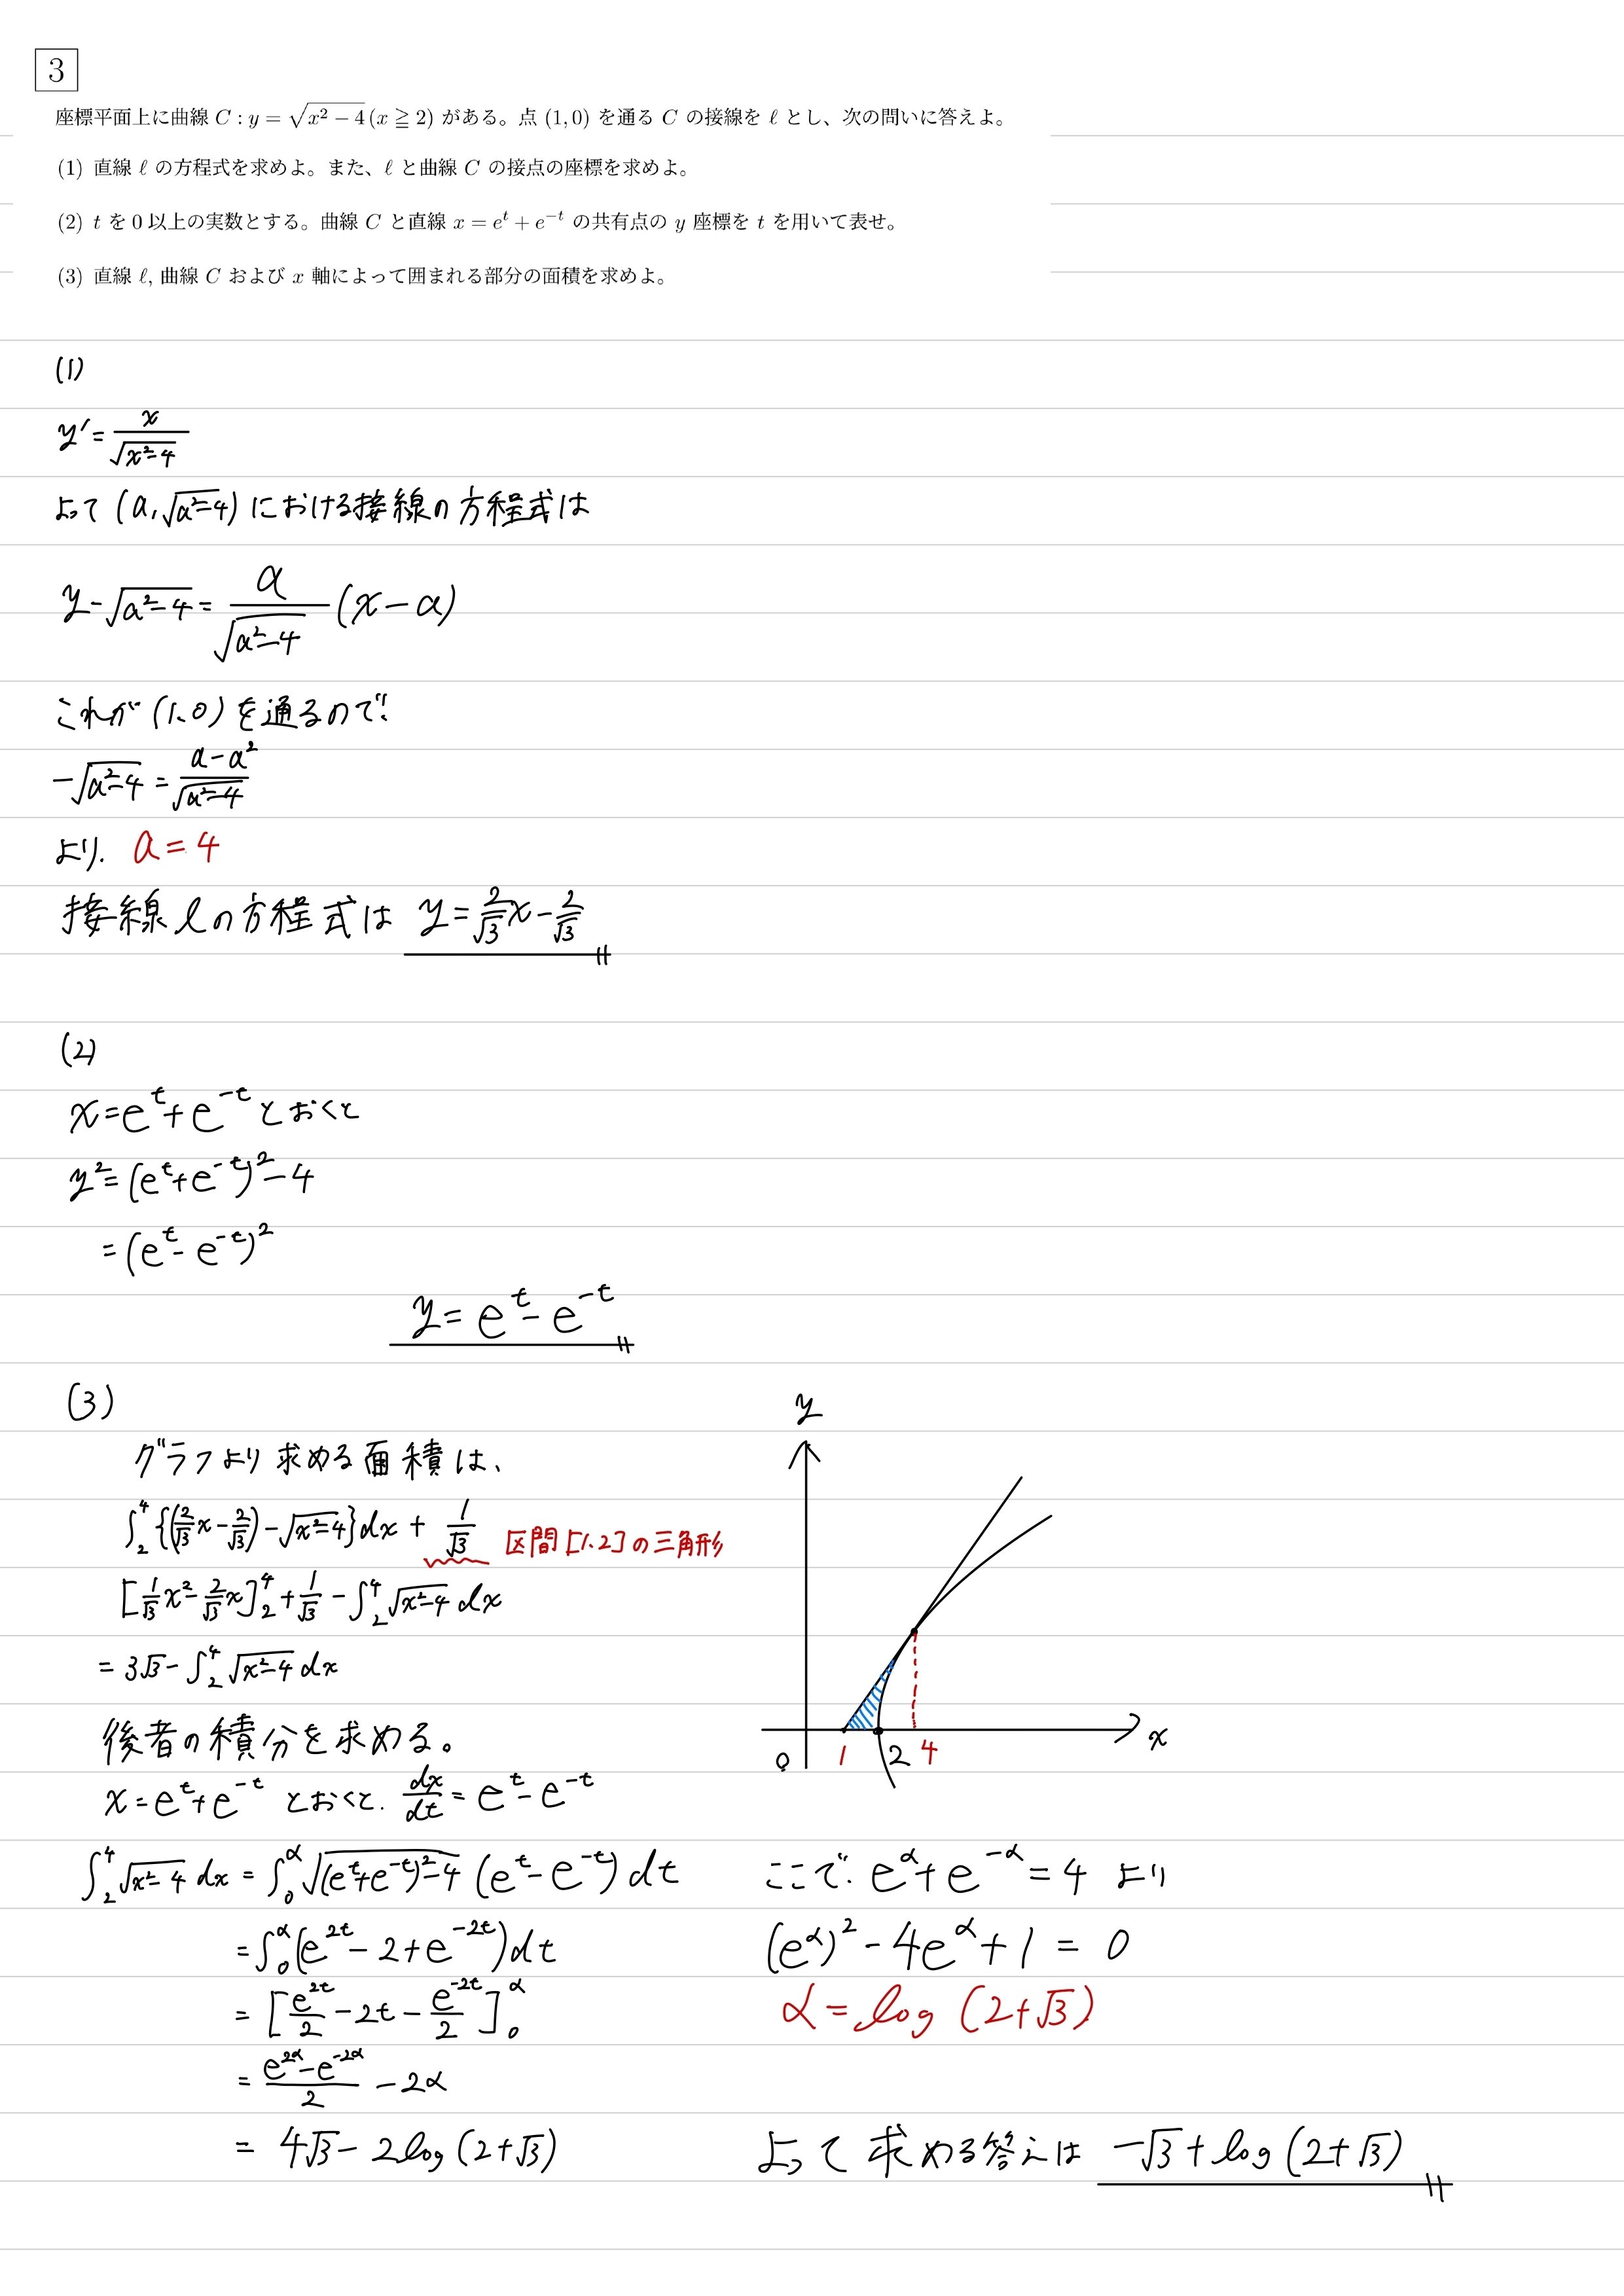 3
座標平面上に曲線 C : y = √(x² − 4) (x ≧ 2) がある。点 (1, 0) を通る C の接線を ℓ とし、次の問いに答えよ。
(1) 直線 ℓ の方程式を求めよ。また、ℓ と曲線 C の接点の座標を求めよ。
(2) t を 0 以上の実数とする。曲線 C と直線 x = e^t + e^{−t} の共有点の y 座標を t を用いて表せ。
(3) 直線 ℓ, 曲線 C および x 軸によって囲まれる部分の面積を求めよ。
(1)
y′ = x/√(x²−4)
よって (a, √(a²−4)) における接線の方程式は
y − √(a²−4) = a/√(a²−4) (x − a)
これが (1, 0) を通るので、
−√(a²−4) = (a − a²)/√(a²−4)
より、a = 4
接線 ℓ の方程式は y = 2/√3 x − 2/√3
(2)
x = e^t + e^{−t} とおくと
y² = (e^t + e^{−t})² − 4
= (e^t − e^{−t})²
y = e^t − e^{−t}
(3)
グラフより求める面積は、
∫_2^4 {(2/√3 x − 2/√3) − √(x²−4)} dx + 1/√3 区間 [1, 2] の三角形
[1/√3 x² − 2/√3 x]_2^4 + 1/√3 − ∫_2^4 √(x²−4) dx
= 3√3 − ∫_2^4 √(x²−4) dx
後者の積分を求める。
x = e^t + e^{−t} とおくと、dx/dt = e^t − e^{−t}
y
x
0
1
2
4
∫_2^4 √(x²−4) dx = ∫_0^α √((e^t + e^{−t})² − 4) (e^t − e^{−t}) dt
= ∫_0^α (e^{2t} − 2 + e^{−2t}) dt
= [e^{2t}/2 − 2t − e^{−2t}/2]_0^α
= (e^{2α} − e^{−2α})/2 − 2α
= 4√3 − 2log(2 + √3)
ここで、e^α + e^{−α} = 4 より
(e^α)² − 4e^α + 1 = 0
α = log(2 + √3)
よって求める答えは −√3 + log(2 + √3)